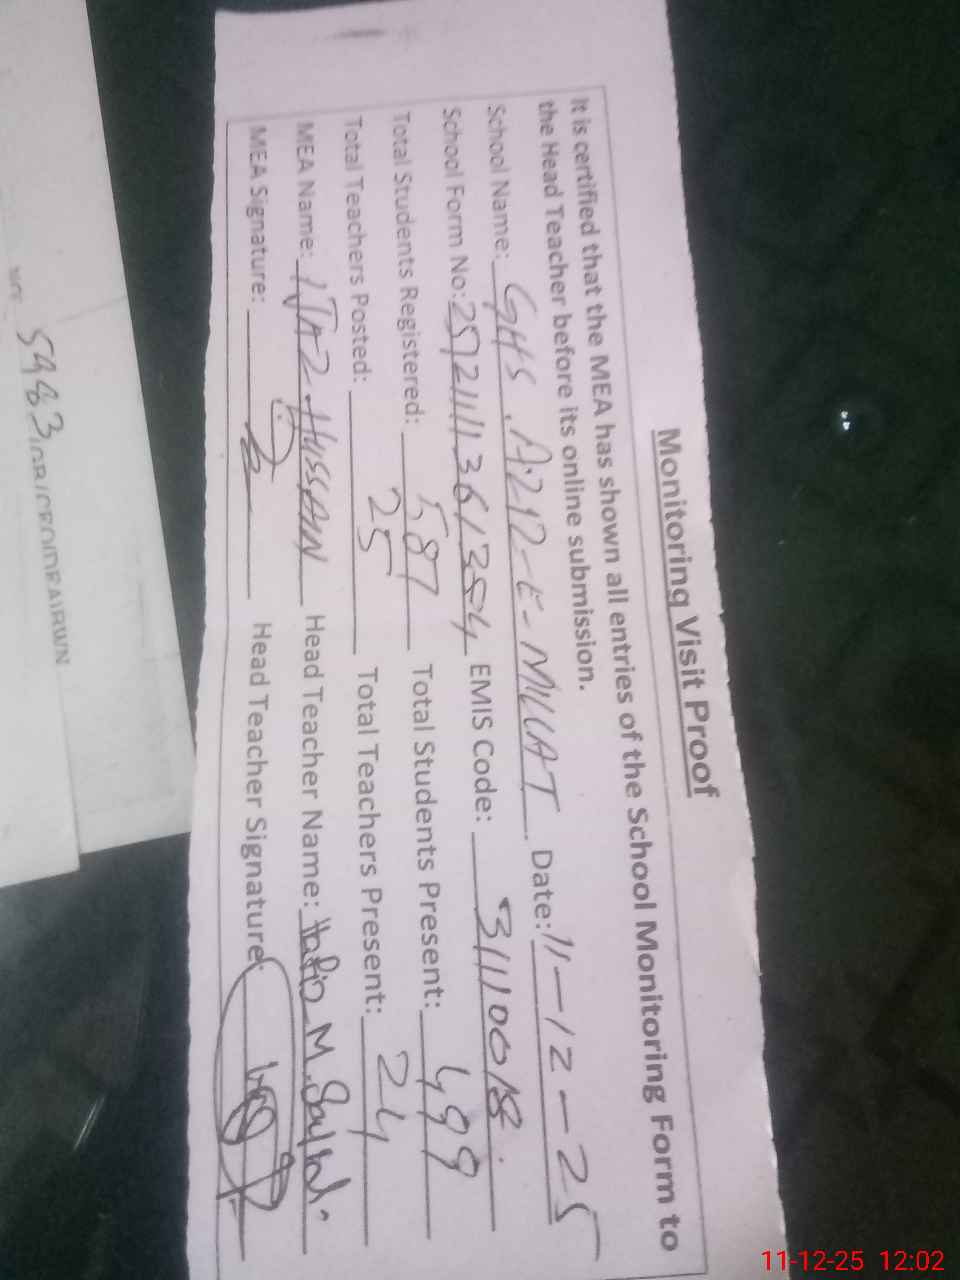 Monitoring Visit Proof
It is certified that the MEA has shown all entries of the School Monitoring Form to
the Head Teacher before its online submission.
School Name: GHS. A:212-E-MILLAT Date: 11-12-25
School Form No: EMIS Code: 31110018.
Total Students Registered: 587 Total Students Present: 499
Total Teachers Posted: 25 Total Teachers Present: 24
MEA Name: IJAZ HUSSAIN Head Teacher Name: Hafiz M.
MEA Signature: Head Teacher Signature:
11-12-25 12:02